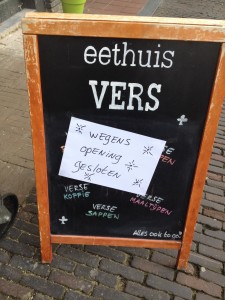 eethuis
VERS
WEGENS
OPENING
gesloten
VERSE
KOFFIE
VERSE
MAALTIJDEN
VERSE
SAPPEN
Alles ook to go!